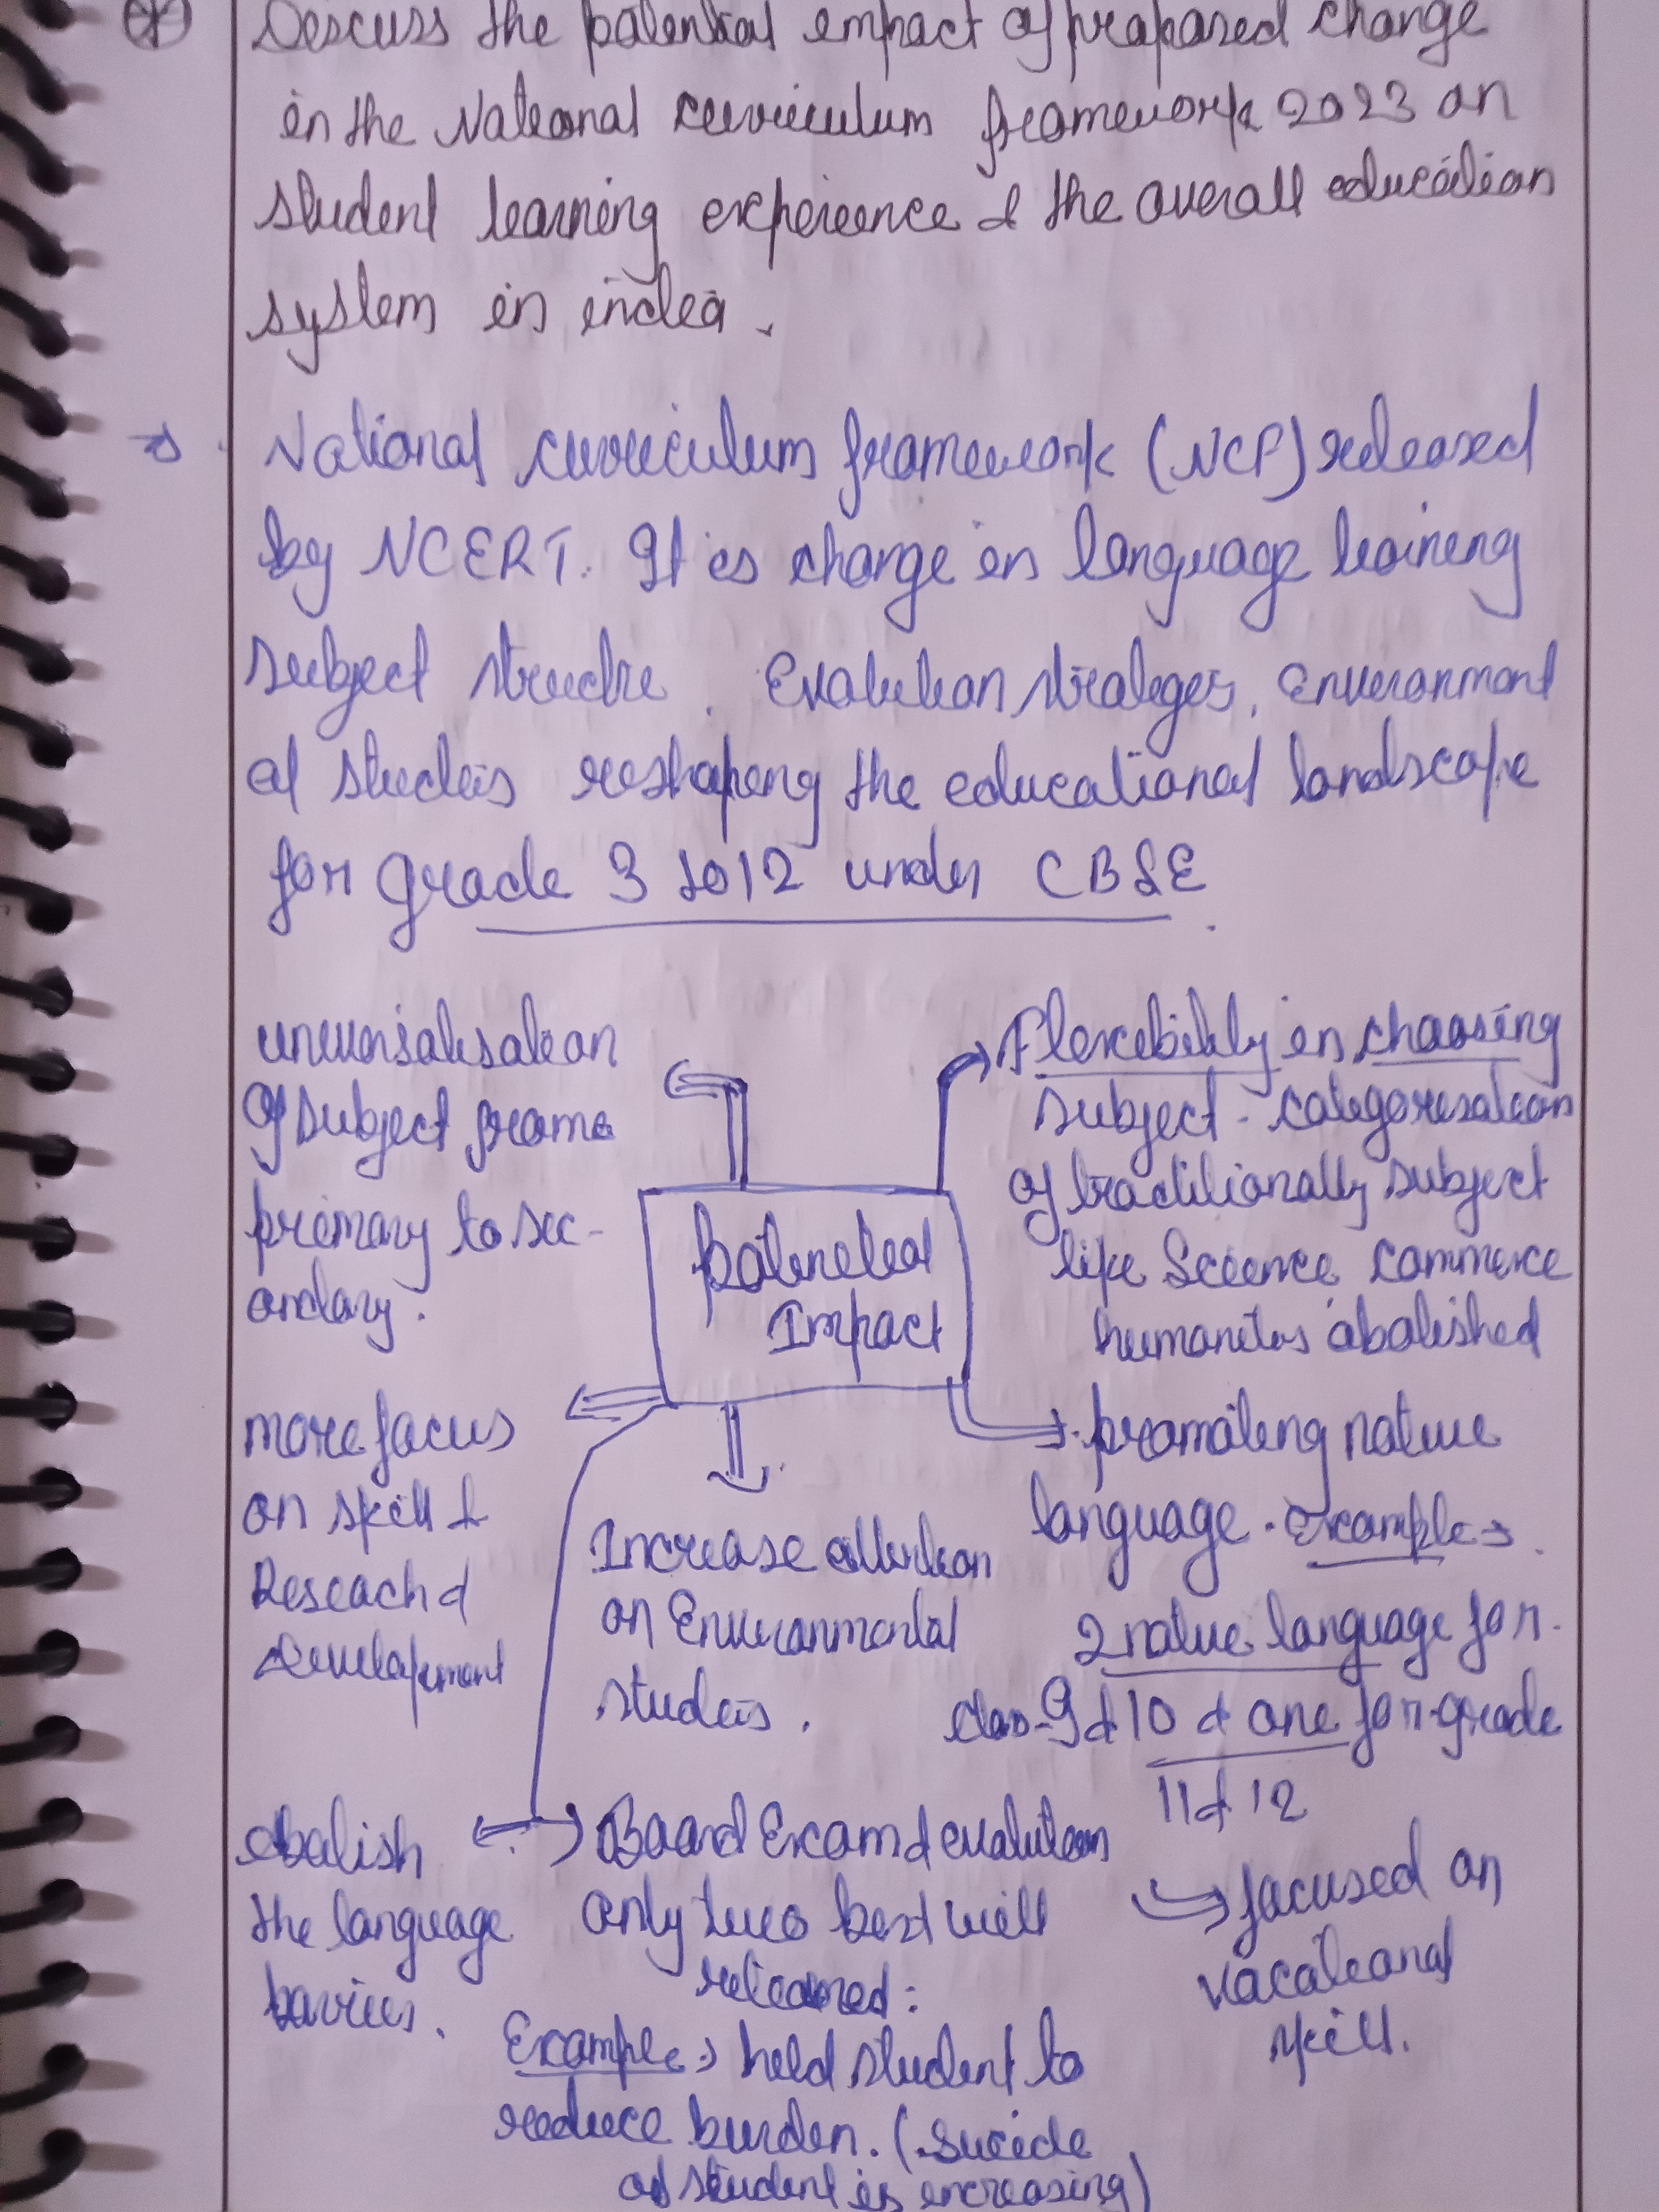 Q
Discuss the potential impact of proposed change
in the National curriculum framework 2023 on
student learning experience & the overall education
system in india.
National curriculum framework (NCF) released
by NCERT. It is change in language learning
subject structre. Evalution strateges, environment
al studeis reshaping the educational landscape
for grade 3 to 12 under CBSE.
universalisation
of subject frome
primary to sec-
ondary.
Flexcibility in choosing
subject - categorisation
of traditionally subject
like Science, commerce
humanites abolished
potential
Impact
more focus
on skill &
Reseach &
Development
Increase attention
on Environmental
studeis.
promoting native
language. Example →
2 native language for
class-9 & 10 & one for grade
11 & 12
abolish
the language
barriers.
Board Exam & evalution
only two best will
retained:
Example → held student to
reduce burden. (suicide
of student is increasing)
focused on
vocational
skill.